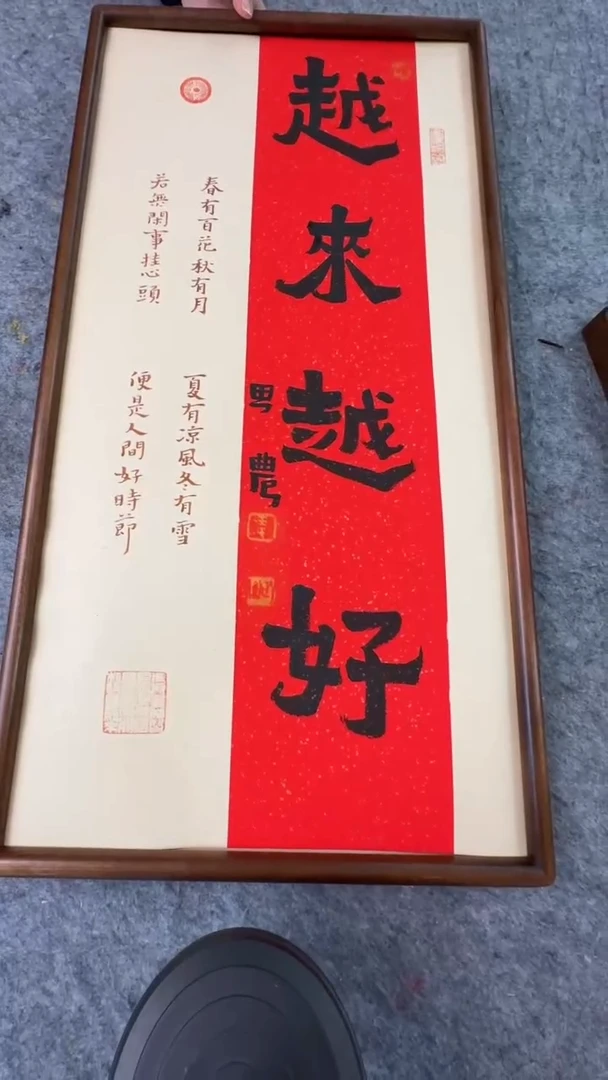 越來越好
農
春有百花秋有月
夏有凉風冬有雪
若無閑事挂心頭
便是人間好時節